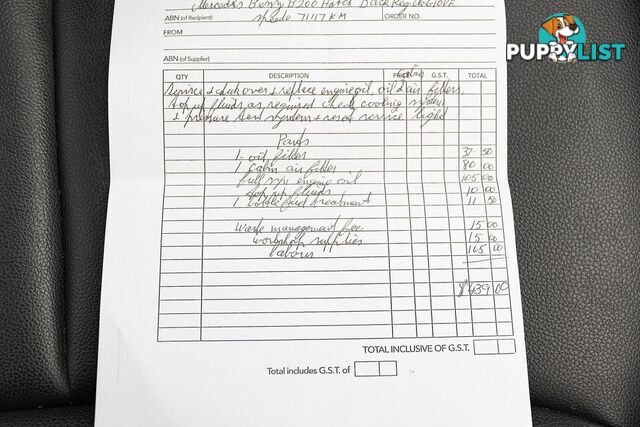 Mercedes Benz B200 Hatch Back Reg.
ABN (of Recipient) speedo 71117 KM ORDER NO.
FROM
PUPPYLIST
ABN (of Supplier)
QTY DESCRIPTION PRICE G.S.T. TOTAL
Service & check over & replace engine oil, oil & air filters,
top up fluids as required check cooling system
& pressure test system & reset service light
Parts
1 - oil filter 37-50
1 cabin air filter 80 00
full syn engine oil 105 00
top up fluids 10 00
1 bottle fuel treatment 11 50
Waste management fee 15 00
workshop supplies 15 00
labour 165 00
$439 00
TOTAL INCLUSIVE OF G.S.T.
Total includes G.S.T. of